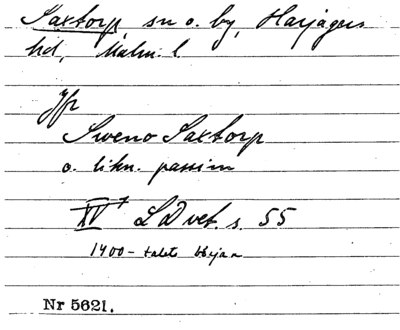 Saxtorp, sn o. by, Harjagers
hd, Malm. l.
Jfr
Sweno Saxtorp
o. likn. passim
XV 1 LD vet. s. 55
1400-talets början
Nr 5621.